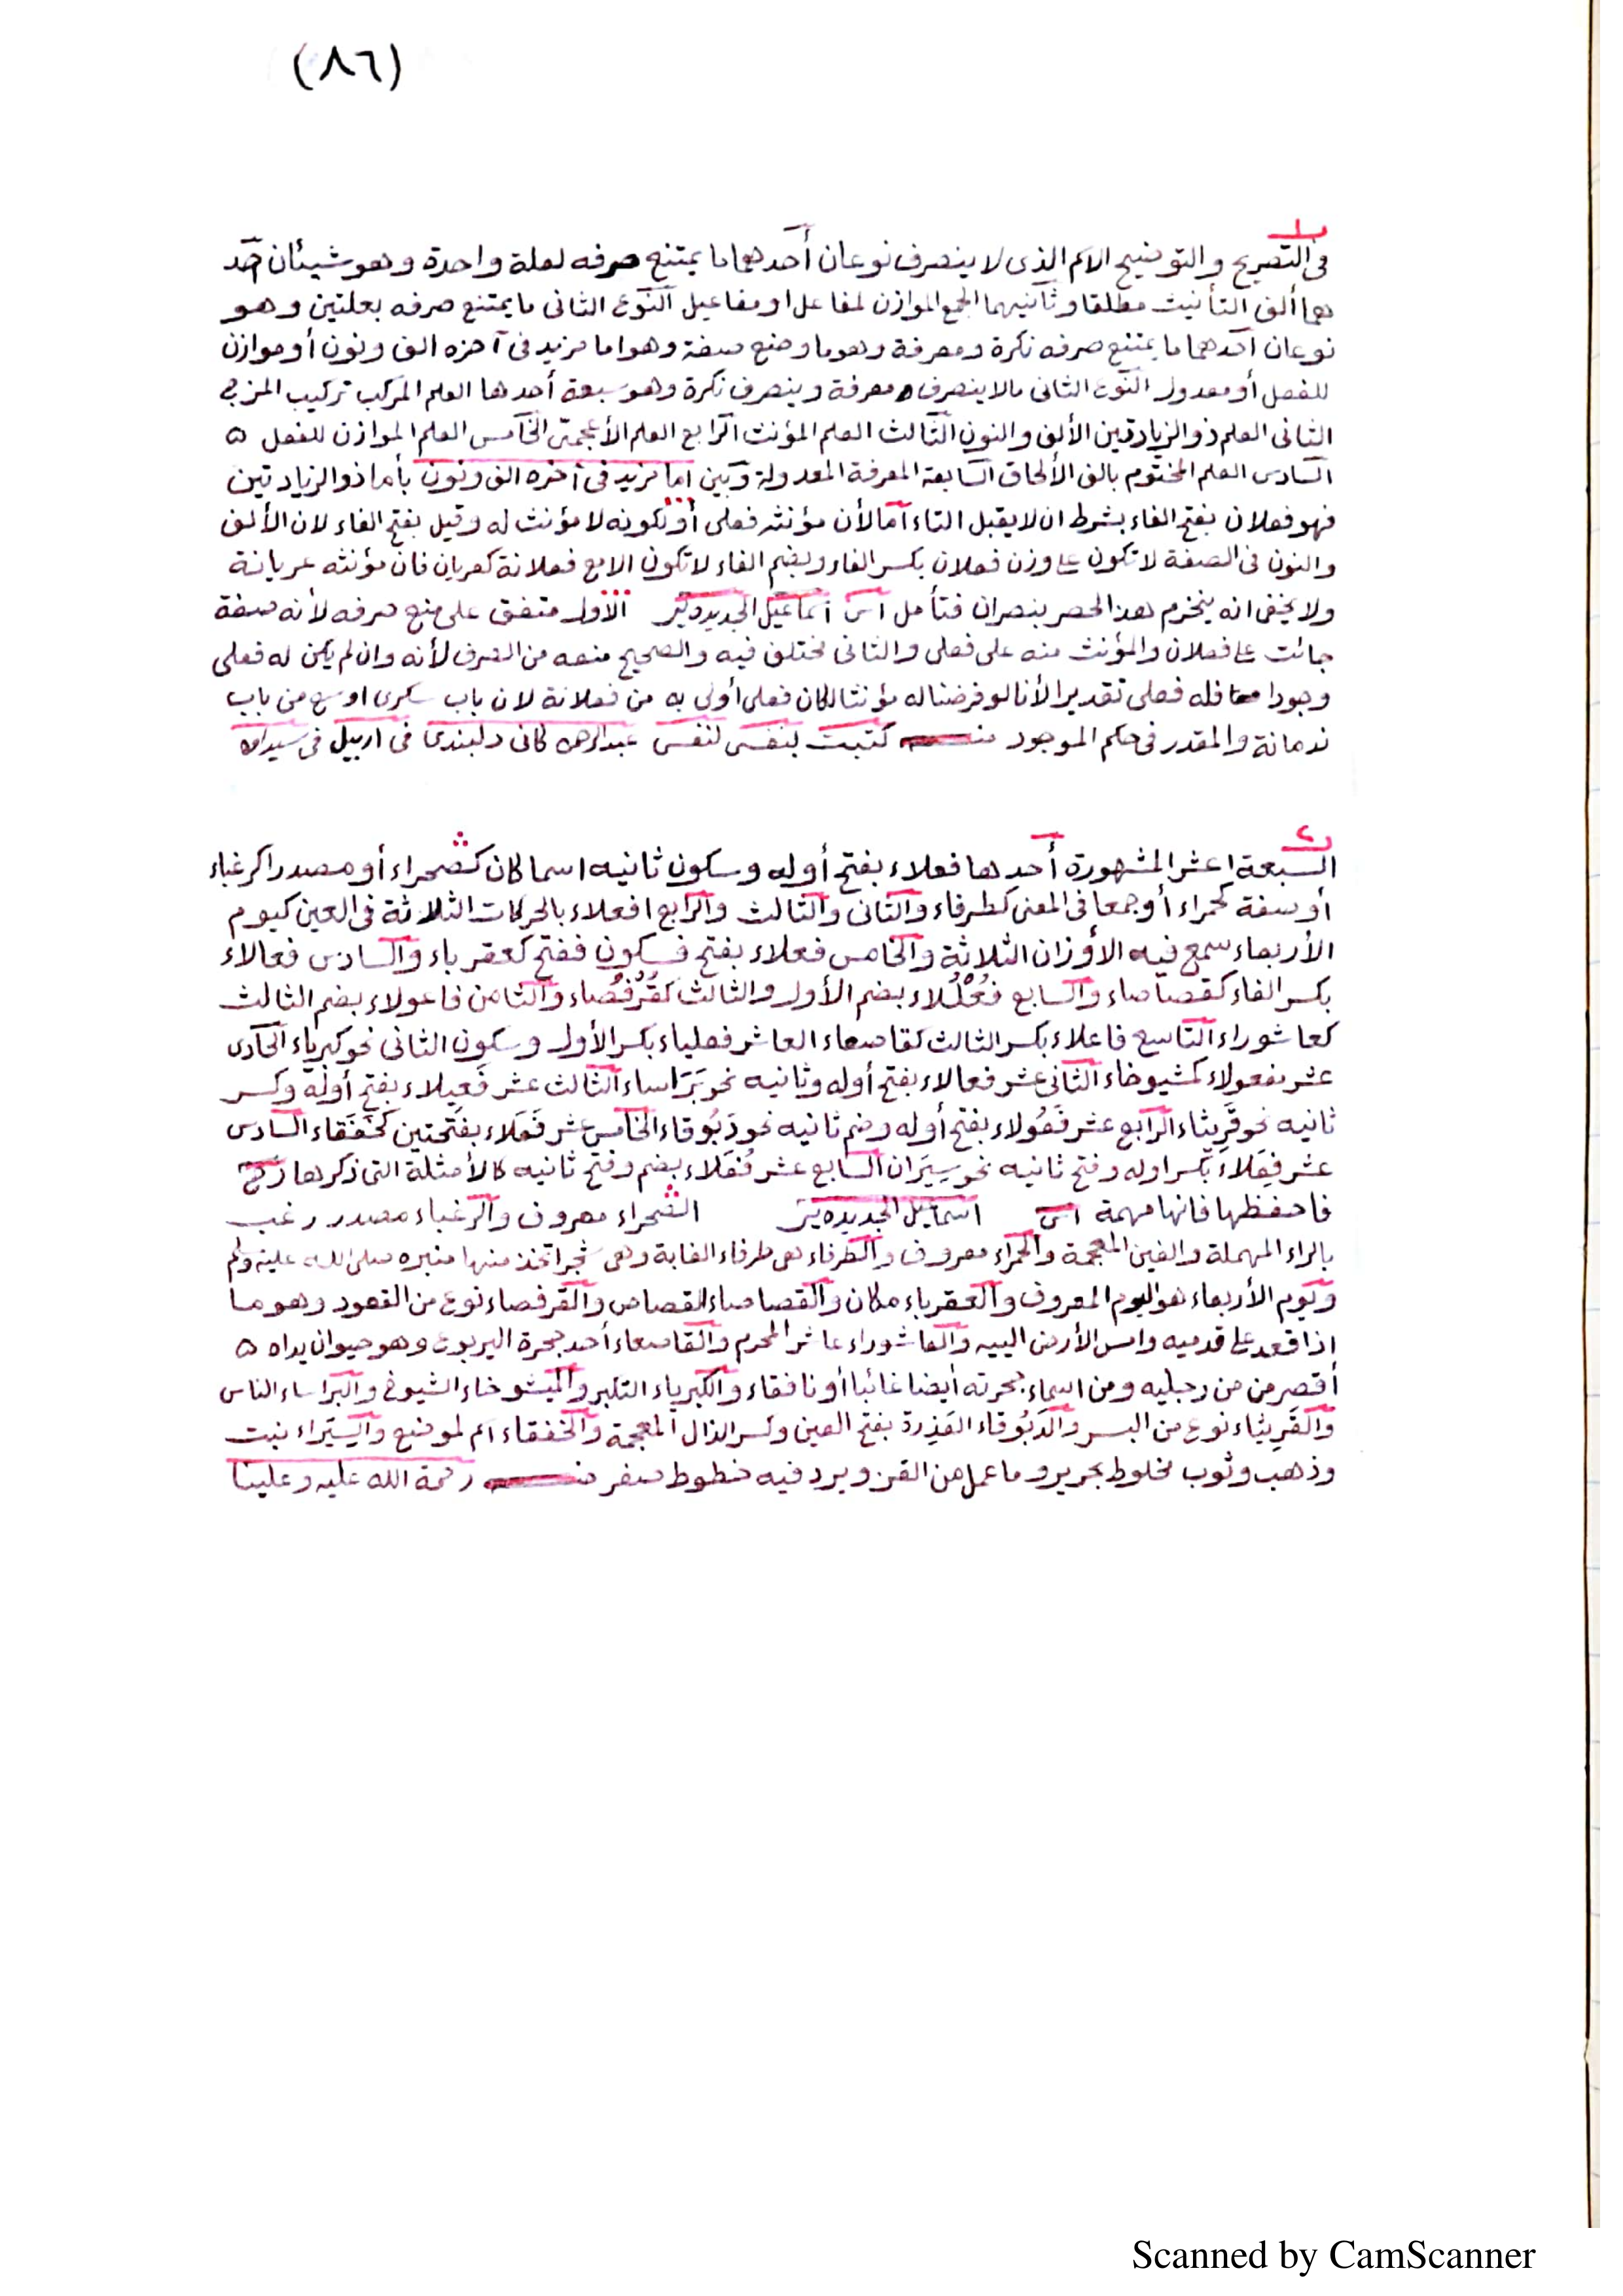 (٨٦)
١
فى التصريح والتوضيح الاسم الذى لا ينصرف نوعان أحدهما ما يمتنع صرفه لعلة واحدة وهو شيئان احد
هما ألف التأنيث مطلقا وثانيهما الجمع الموازن لمفاعل او مفاعيل النوع الثانى ما يمتنع صرفه بعلتين وهو
نوعان احدهما ما يمتنع صرفه نكرة ومعرفة وهو ما وضع صفة وهو اما مزيد فى آخره الف ونون أو موازن
للفعل أو معدول النوع الثانى ما لا ينصرف معرفة وينصرف نكرة وهو سبعة أحدها العلم المركب تركيب المزجى
الثانى العلم ذو الزيادتين الألف والنون الثالث العلم المؤنث الرابع العلم الأعجمى الخامس العلم الموازن للفعل ۵
السادس العلم المختوم بالف الألحاق السابعة المعرفة المعدولة وبين اما مزيد فى آخره الف ونون بأما ذو الزيادتين
فهو فعلان بفتح الفاء بشرط ان لا يقبل التاء اما لأن مؤنثه فعلى أو لكونه لا مؤنث له وقيل بفتح الفاء لان الألف
والنون فى الصفة لا تكون على وزن فعلان بكسر الفاء وبضم الفاء لا تكون الا مع فعلانة كعريان فان مؤنثه عريانة
ولا يخفى انه ينخرم هذا الحصر بنصران فتأمل اسماعيل الجديده الأول متفق على منع صرفه لأنه صفة
جائت على فعلان والمؤنث منه على فعلى والثانى مختلف فيه والصحيح منعه من الصرف لأنه وان لم يكن له فعلى
وجودا فله فعلى تقديرا لأنا لو فرضنا له مؤنثا لكان فعلى أولى به من فعلانة لان باب سكرى اوسع من باب
ندمانة والمقدر فى حكم الموجود كتبت لنفسى عبدالرحمن كانى دلبندى فى اربيل فى سيداوه
٢
السبعة عشر المشهورة أحدها فعلاء بفتح أوله وسكون ثانيه اسما كان كصحراء أو مصدرا كرغباء
أو صفة كحمراء أو جمعا فى المعنى كطرفاء والثانى والثالث والرابع افعلاء بالحركات الثلاثة فى العين كيوم
الأربعاء سمع فيه الأوزان الثلاثة والخامس فعللاء بفتح فسكون ففتح كعقرباء والسادس فعالاء
بكسر الفاء كقصاصاء والسابع فُعْلُلاء بضم الأول والثالث كقُرْفُصاء والثامن فاعولاء بضم الثالث
كعاشوراء التاسع فاعلاء بكسر الثالث كقاصعاء العاشر فعلياء بكسر الأول وسكون الثانى نحو كبرياء الحادى
عشر مفعولاء كمشيوخاء الثانى عشر فعالاء بفتح أوله وثانيه نحو بَرَاساء الثالث عشر فَعِيلاء بفتح أوله وكسر
ثانيه نحو قَرِيثاء الرابع عشر فَعُولاء بفتح أوله وضم ثانيه نحو دَبُوقاء الخامس عشر فَعَلاء بفتحتين كخَفَقاء السادس
عشر فِعَلاء بكسر اوله وفتح ثانيه نحو سِيَراء السابع عشر فُعَلاء بضم وفتح ثانيه كالأمثلة التى ذكرها
فاحفظها فانها مهمة اسماعيل الجديده الصحراء معروف والرغباء مصدر رغب
بالراء المهملة والغين المعجمة والحمراء معروف والطرفاء هى طرفاء الغابة وهى شجر اتخذ منها منبره صلى الله عليه وسلم
ويوم الأربعاء هو اليوم المعروف والعقرباء مكان والقصاصاء القصاص والقرفصاء نوع من القعود وهو ما
اذا قعد على قدميه وامس الأرض الييه والعاشوراء عاشر المحرم والقاصعاء أحد جحرة اليربوع وهو حيوان يداه ۵
أقصر من من رجليه ومن اسماء جحرته أيضا غائبا أو نافقاء والكبرياء التكبر والمشيوخاء الشيوخ والبراساء الناس
والقَرِيثاء نوع من البسر والدَبُوقاء العَذِرة بفتح العين وكسر الذال المعجمة والخفقاء اسم لموضع والسيراء نبت
وذهب وثوب مخلوط بحرير وما عمل من القز وبرد فيه خطوط صفر رحمة الله عليه وعلينا
Scanned by CamScanner